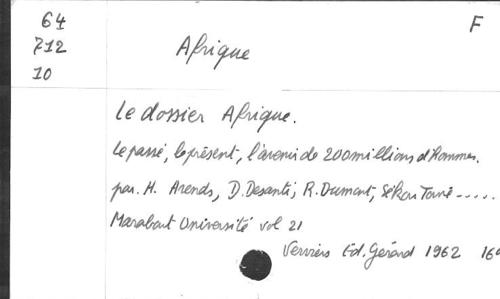 64
712
10
F
Afrique
Le dossier Afrique.
Le passé, le présent, l'avenir de 200 millions d'hommes.
par. H. Arends, D. Desanti, R. Dumont, Sékou Touré .....
Marabout Université vol 21
Verviers Ed. Gérard 1962 16°